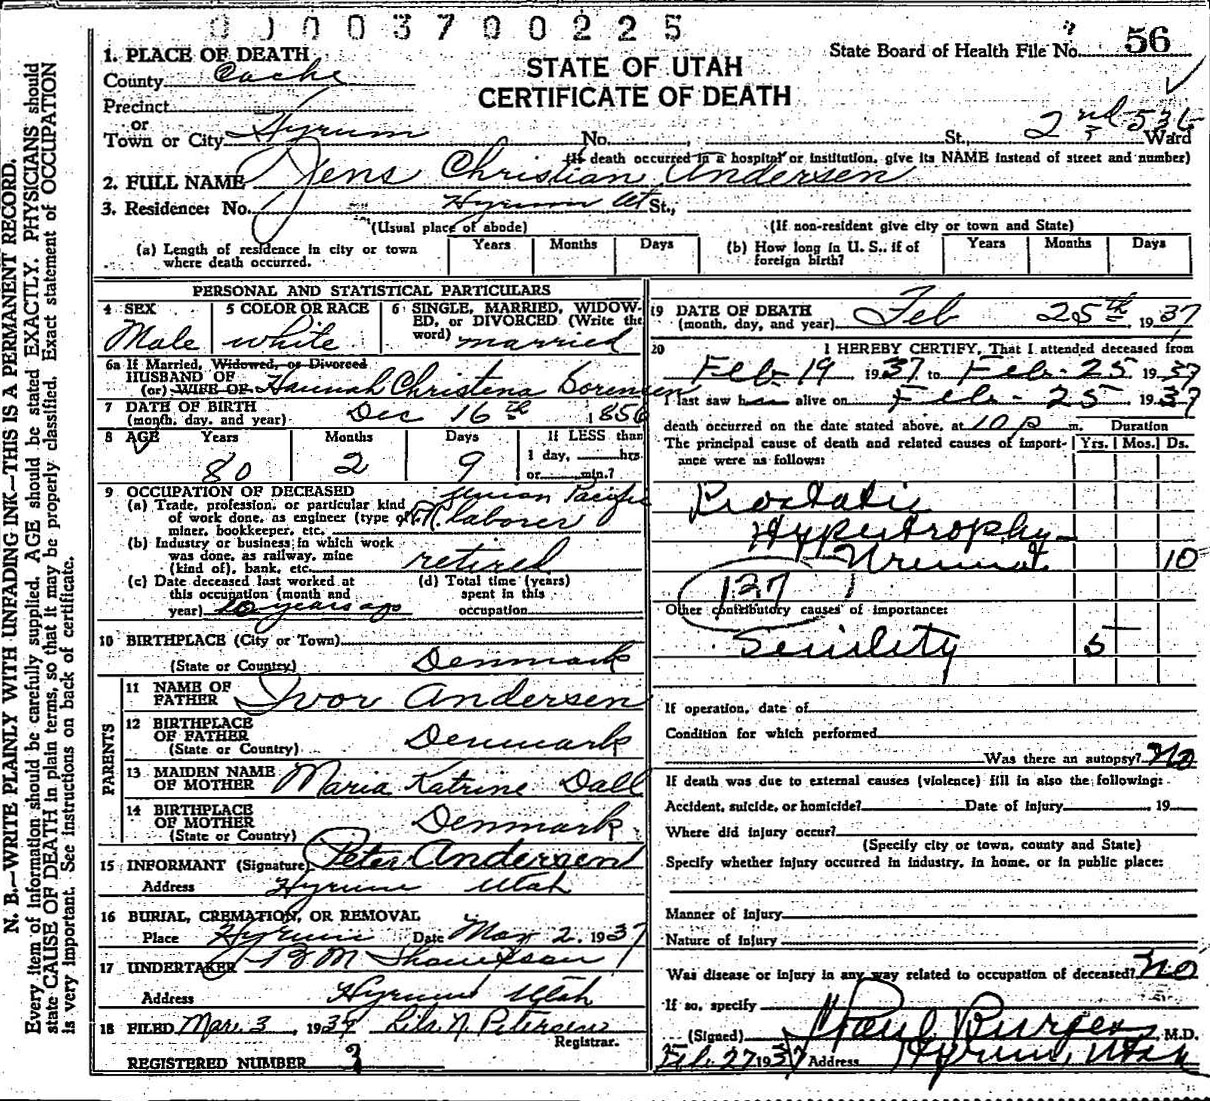 0 0 0 3 7 0 0 2 2 5
State Board of Health File No. 56
STATE OF UTAH
CERTIFICATE OF DEATH
1. PLACE OF DEATH
County Cache
Precinct
or
Town or City Hyrum No. , St., 2nd Ward
(If death occurred in a hospital or institution, give its NAME instead of street and number)
2. FULL NAME Jens Christian Andersen
3. Residence: No. Hyrum Ut St.,
(Usual place of abode) (If non-resident give city or town and State)
(a) Length of residence in city or town where death occurred. Years Months Days
(b) How long in U. S., if of foreign birth? Years Months Days
PERSONAL AND STATISTICAL PARTICULARS
4 SEX Male
5 COLOR OR RACE white
6 SINGLE, MARRIED, WIDOWED, or DIVORCED (Write the word) married
6a If Married, Widowed, or Divorced
HUSBAND OF
(or) WIFE OF Hannah Christena Sorensen
7 DATE OF BIRTH
(month, day, and year) Dec 16th 1856
8 AGE Years Months Days If LESS than
80 2 9 1 day, hrs.
or min.?
9 OCCUPATION OF DECEASED
(a) Trade, profession, or particular kind of work done, as engineer (type of miner, bookkeeper, etc. Union Pacific R.R. laborer
(b) Industry or business in which work was done, as railway, mine (kind of), bank, etc. retired
(c) Date deceased last worked at this occupation (month and year) 10 years ago
(d) Total time (years) spent in this occupation
10 BIRTHPLACE (City or Town)
(State or Country) Denmark
PARENTS
11 NAME OF FATHER Ivor Andersen
12 BIRTHPLACE OF FATHER
(State or Country) Denmark
13 MAIDEN NAME OF MOTHER Maria Katrine Dall
14 BIRTHPLACE OF MOTHER
(State or Country) Denmark
15 INFORMANT (Signature) Peter Andersen
Address Hyrum Utah
16 BURIAL, CREMATION, OR REMOVAL
Place Hyrum Date Mar 2, 1937
17 UNDERTAKER
Address Hyrum Utah
18 FILED Mar. 3, 1937 N. Petersen
Registrar.
REGISTERED NUMBER 3
19 DATE OF DEATH
(month, day, and year) Feb 25th, 1937
20 I HEREBY CERTIFY, That I attended deceased from
Feb-19 1937 to Feb-25 1937
I last saw h alive on Feb-25 1937
death occurred on the date stated above, at 10 p m. Duration
The principal cause of death and related causes of importance were as follows: Yrs. Mos. Ds.
Prostatic
Hypertrophy
10
137
Other contributory causes of importance:
Senility 5
If operation, date of
Condition for which performed
Was there an autopsy? no
If death was due to external causes (violence) fill in also the following:
Accident, suicide, or homicide? Date of Injury 19
Where did injury occur?
(Specify city or town, county and State)
Specify whether injury occurred in industry, in home, or in public place:
Manner of Injury
Nature of Injury
Was disease or injury in any way related to occupation of deceased? no
If so, specify
(Signed) Paul Burgess, M.D.
Feb. 27 1937 Address Hyrum, Utah
N. B.—WRITE PLAINLY WITH UNFADING INK—THIS IS A PERMANENT RECORD.
Every item of information should be carefully supplied. AGE should be stated EXACTLY. PHYSICIANS should
state CAUSE OF DEATH in plain terms, so that it may be properly classified. Exact statement of OCCUPATION
is very important. See instructions on back of certificate.